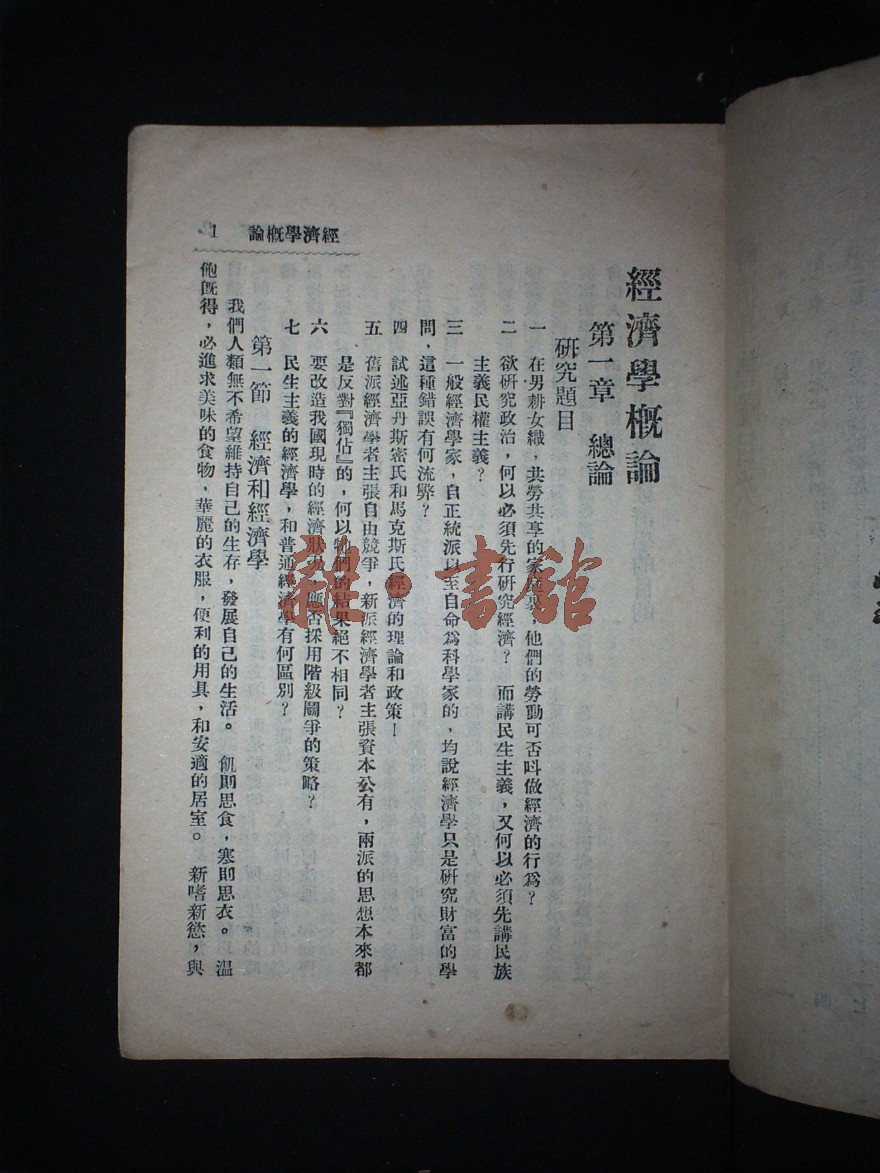 經濟學概論
第一章 總論
研究題目
一 在男耕女織，共勞共享的家庭裏，他們的勞動可否叫做經濟的行爲？
二 欲研究政治，何以必須先行研究經濟？ 而講民生主義，又何以必須先講民族
主義民權主義？
三 一般經濟學家，自正統派以至自命爲科學家的，均說經濟學只是研究財富的學
問，這種錯誤有何流弊？
四 試述亞丹斯密氏和馬克斯氏經濟的理論和政策！
五 舊派經濟學者主張自由競爭，新派經濟學者主張資本公有，兩派的思想本來都
是反對『獨佔』的，何以牠們的結果絕不相同？
六 要改造我國現時的經濟狀況，應否採用階級鬭爭的策略？
七 民生主義的經濟學，和普通經濟學有何區別？
第一節 經濟和經濟學
我們人類無不希望維持自己的生存，發展自己的生活。 飢則思食，寒則思衣。 溫
飽旣得，必進求美味的食物，華麗的衣服，便利的用具，和安適的居室。 新嗜新慾，與
經濟學概論 1
雜·書館